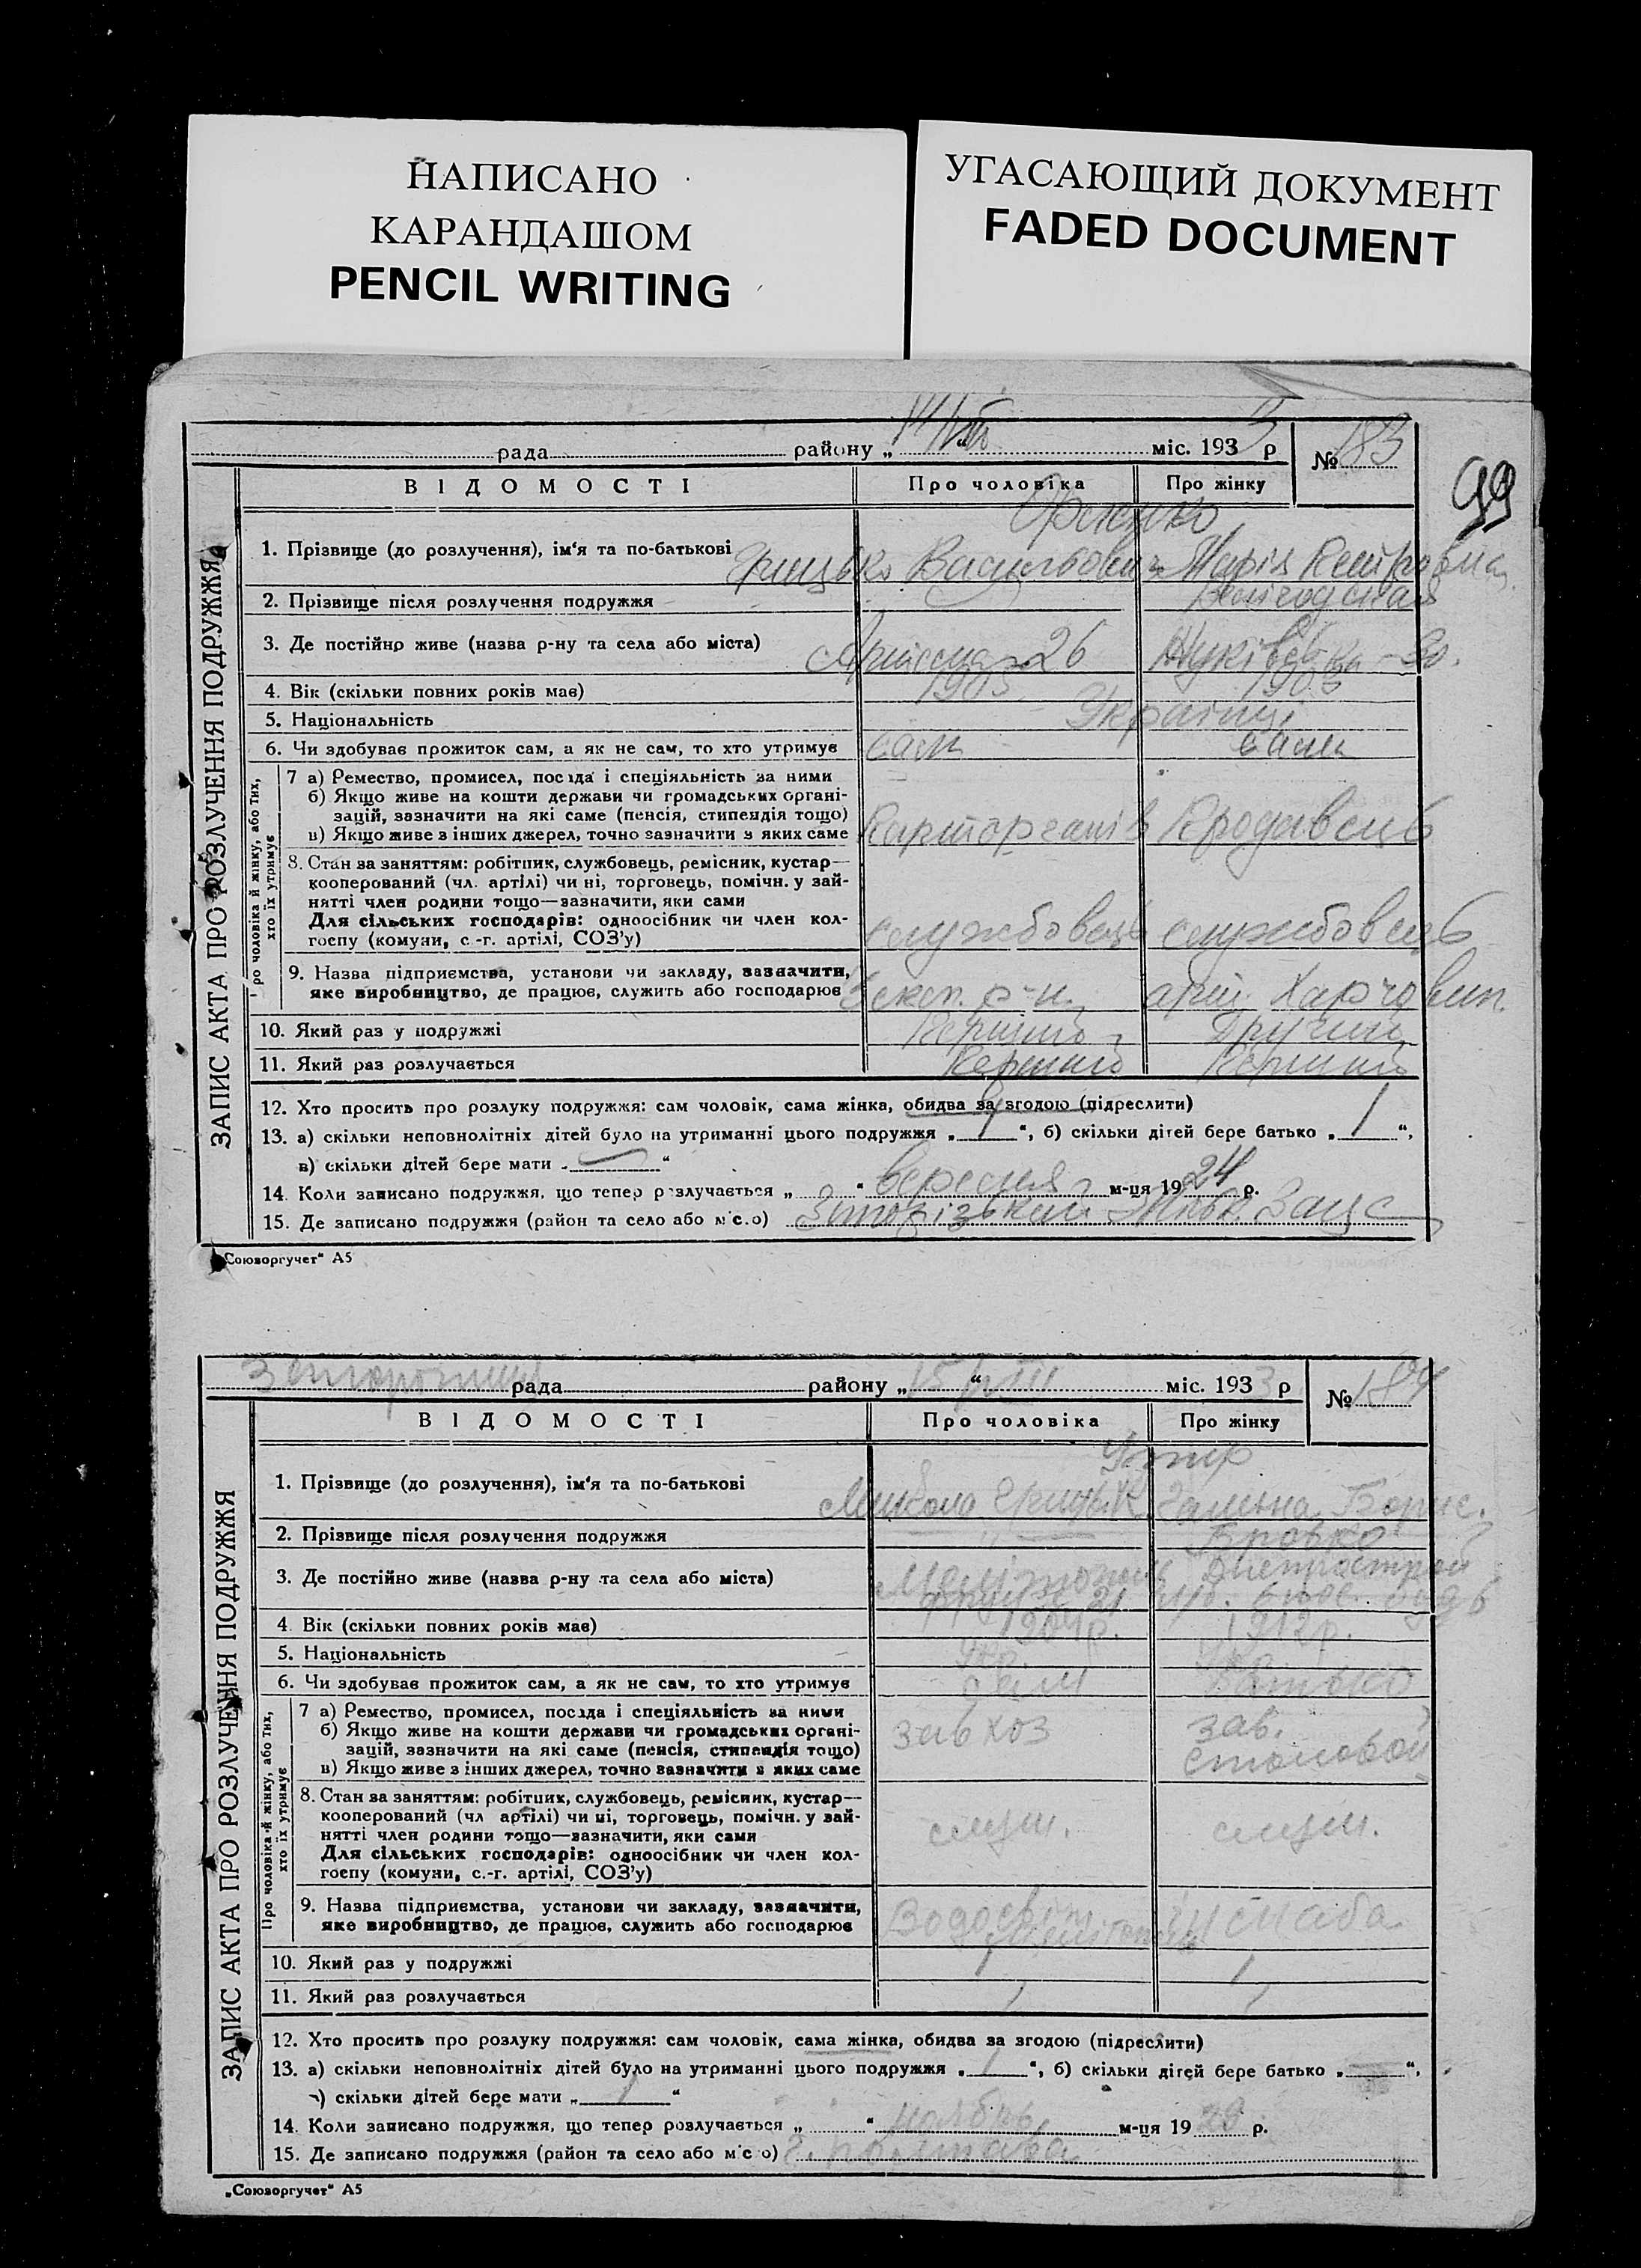 НАПИСАНО
КАРАНДАШОМ
PENCIL WRITING
УГАСАЮЩИЙ ДОКУМЕНТ
FADED DOCUMENT
рада району „ “ міс. 1933 р № 183
99
ВІДОМОСТІ Про чоловіка Про жінку
ЗАПИС АКТА ПРО РОЗЛУЧЕННЯ ПОДРУЖЖЯ
1. Прізвище (до розлучення), ім‘я та по-батькові Грицько Васильович Марія Петровна
2. Прізвище після розлучення подружжя
3. Де постійно живе (назва р-ну та села або міста) 26
4. Вік (скільки повних років має) 1903 1903
5. Національність Українці
6. Чи здобував прожиток сам, а як не сам, то хто утримує сам сама
Про чоловіка й жінку, або тих, хто їх утримує
7 а) Ремество, промисел, посада і спеціяльність за ними
б) Якщо живе на кошти держави чи громадських органі-
зацій, зазначити на які саме (пенсія, стипендія тощо)
в) Якщо живе з інших джерел, точно зазначити з яких саме Продавець
8. Стан за заняттям: робітник, службовець, ремісник, кустар—
кооперований (чл. артілі) чи ні, торговець, помічн. у зай-
нятті член родини тощо—зазначити, яки сами
Для сільських господарів: одноосібник чи член кол-
госпу (комуни, с.-г. артілі, СОЗ'у) службовець службовець
9. Назва підприємства, установи чи закладу, зазначити,
яке виробництво, де працює, служить або господарює
10. Який раз у подружжі Перший Другий
11. Який раз розлучається Перший Перший
12. Хто просить про розлуку подружжя: сам чоловік, сама жінка, обидва за згодою (підреслити)
13. а) скільки неповнолітніх дітей було на утриманні цього подружжя „ 1 “, б) скільки дітей бере батько „ 1 “,
в) скільки дітей бере мати „ — “
14. Коли записано подружжя, що тепер розлучається „ “ вересня м-ця 1924 р.
15. Де записано подружжя (район та село або місто) Запорізький Загс
„Союзоргучет“ А5
рада району „15“ VIII міс. 1933 р № 184
ВІДОМОСТІ Про чоловіка Про жінку
ЗАПИС АКТА ПРО РОЗЛУЧЕННЯ ПОДРУЖЖЯ
1. Прізвище (до розлучення), ім‘я та по-батькові Микола Гриць. Борис.
2. Прізвище після розлучення подружжя „ Бровко
3. Де постійно живе (назва р-ну та села або міста) Мелітополь Днепрострой
4. Вік (скільки повних років має) 1904р. 1912р.
5. Національність Укр. Укр.
6. Чи здобував прожиток сам, а як не сам, то хто утримує сам батько
Про чоловіка й жінку, або тих, хто їх утримує
7 а) Ремество, промисел, посада і спеціяльність за ними
б) Якщо живе на кошти держави чи громадських органі-
зацій, зазначити на які саме (пенсія, стипендія тощо)
в) Якщо живе з інших джерел, точно зазначити з яких саме завхоз зав. столовой
8. Стан за заняттям: робітник, службовець, ремісник, кустар—
кооперований (чл артілі) чи ні, торговець, помічн. у зай-
нятті член родини тощо—зазначити, яки сами
Для сільських господарів: одноосібник чи член кол-
госпу (комуни, с.-г. артілі, СОЗ'у) служ. служ.
9. Назва підприємства, установи чи закладу, зазначити,
яке виробництво, де працює, служить або господарює
10. Який раз у подружжі 1 1
11. Який раз розлучається 1 1
12. Хто просить про розлуку подружжя: сам чоловік, сама жінка, обидва за згодою (підреслити)
13. а) скільки неповнолітніх дітей було на утриманні цього подружжя „ 1 “, б) скільки дітей бере батько „ — “,
в) скільки дітей бере мати „ 1 “
14. Коли записано подружжя, що тепер розлучається „ “ ноябрь м-ця 1929 р.
15. Де записано подружжя (район та село або місто) г. Полтава
„Союзоргучет“ А5